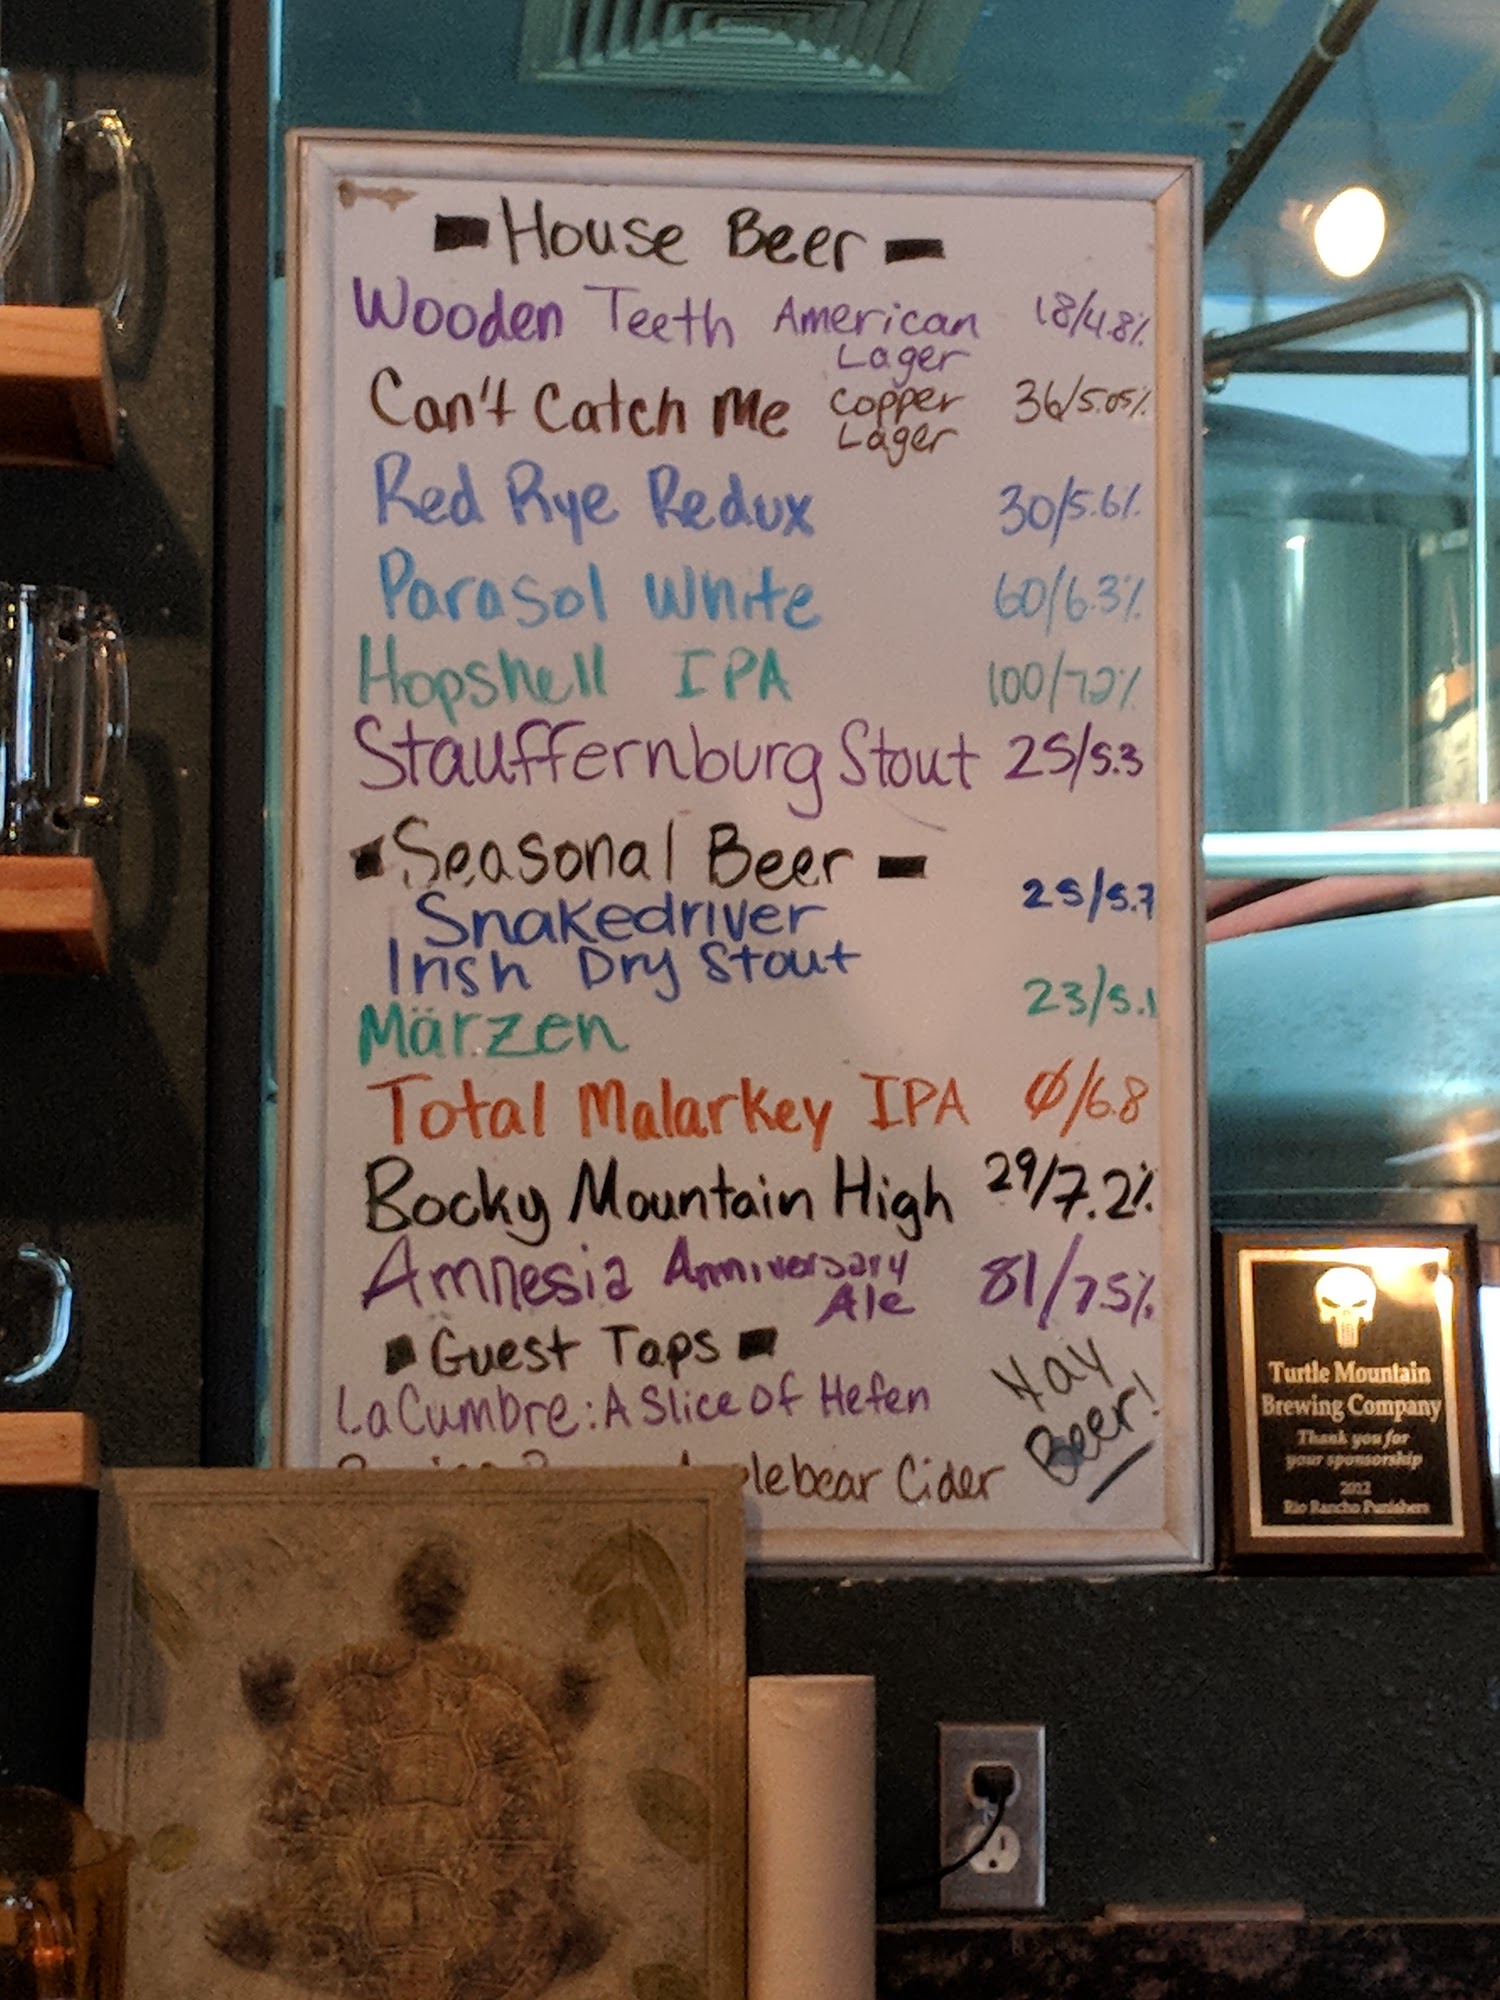 House Beer
Wooden Teeth American Lager 18/4.8%
Can't Catch Me Copper Lager 36/5.05%
Red Rye Redux 30/5.6%
Parasol White 60/6.3%
Hopshell IPA 100/7.2%
Stauffernburg Stout 25/5.3
Seasonal Beer
Snakedriver 25/5.7
Irish Dry Stout
Märzen 23/5.1
Total Malarkey IPA Ø/6.8
Bocky Mountain High 29/7.2%
Amnesia Anniversary Ale 81/7.5%
Guest Taps
La Cumbre: A Slice of Hefen
Cider
Yay
Beer!
Turtle Mountain
Brewing Company
Thank you for
your sponsorship
2012
Rio Rancho Punishers